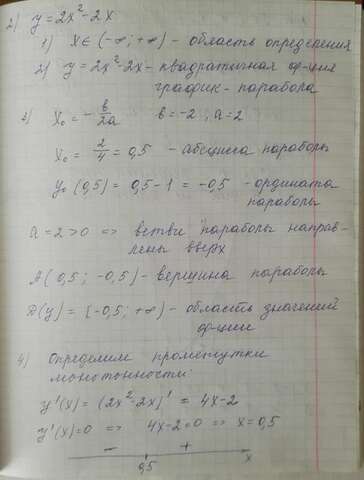 2) y = 2x² - 2x
1) x ∈ (-∞; +∞) - область определения
2) y = 2x² - 2x - квадратичная ф-ция
график - парабола
3) x₀ = - в/2a в = -2, a = 2
x₀ = 2/4 = 0,5 - абсцисса параболы
y₀ (0,5) = 0,5 - 1 = -0,5 - ордината
параболы
a = 2 > 0 => ветви параболы направ-
лены вверх
A (0,5; -0,5) - вершина параболы
D(y) = [-0,5; +∞) - область значений
ф-ции
4) Определим промежутки
монотонности:
y'(x) = (2x² - 2x)' = 4x - 2
y'(x) = 0 => 4x - 2 = 0 => x = 0,5
- +
0,5 x